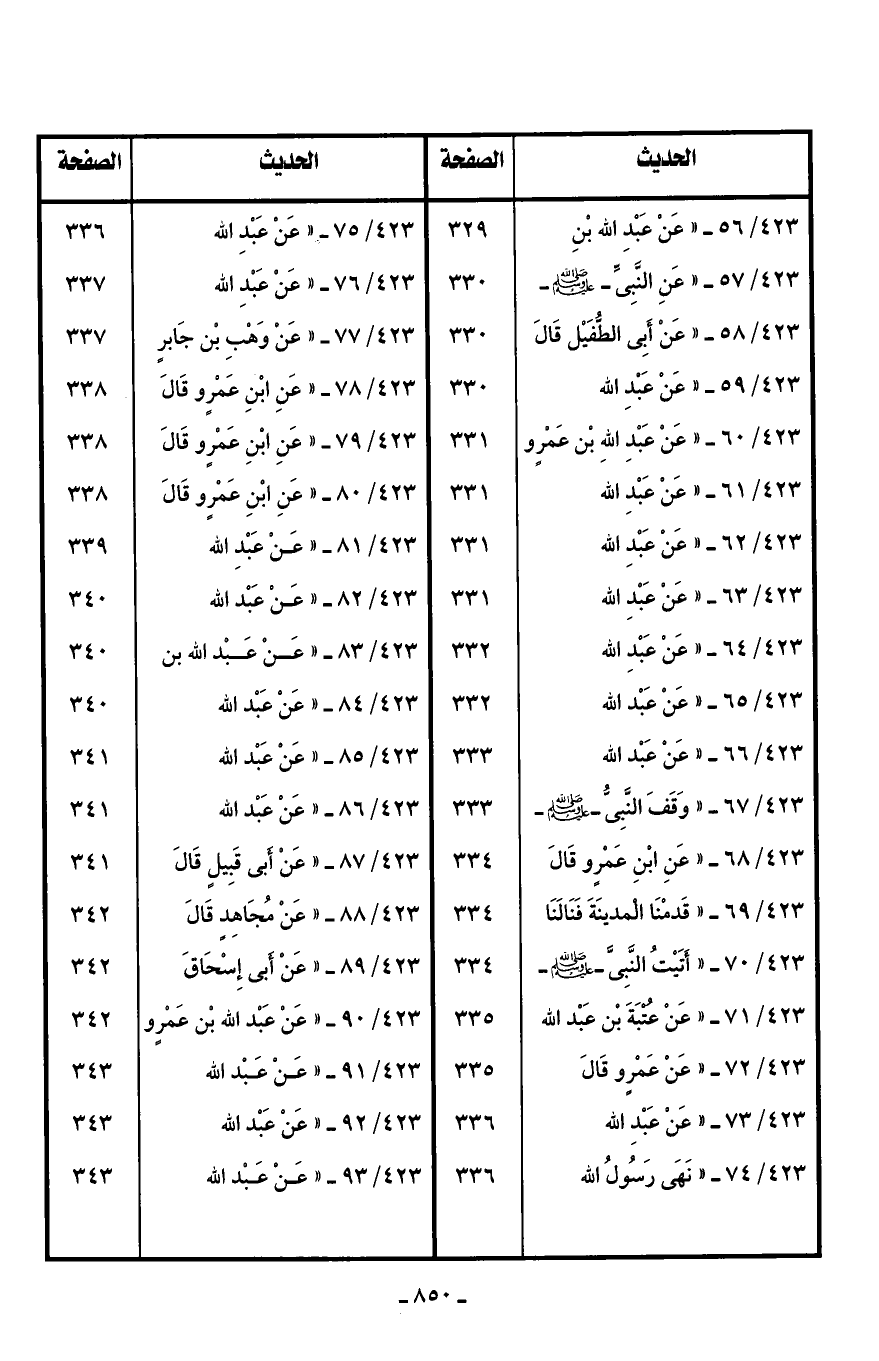 الحديث الصفحة الحديث الصفحة
٤٢٣/ ٥٦ ـ « عَنْ عَبْدِ الله بْنِ ٣٢٩ ٤٢٣/ ٧٥ ـ « عَنْ عَبْدِ الله ٣٣٦
٤٢٣/ ٥٧ ـ « عَنِ النَّبِىِّ ـ ﷺ ـ ٣٣٠ ٤٢٣/ ٧٦ ـ « عَنْ عَبْدِ الله ٣٣٧
٤٢٣/ ٥٨ ـ « عَنْ أَبِى الطُّفَيْلِ قَالَ ٣٣٠ ٤٢٣/ ٧٧ ـ « عَنْ وَهْبِ بْنِ جَابِرٍ ٣٣٧
٤٢٣/ ٥٩ ـ « عَنْ عَبْدِ الله ٣٣٠ ٤٢٣/ ٧٨ ـ « عَنِ ابْنِ عَمْرٍو قَالَ ٣٣٨
٤٢٣/ ٦٠ ـ « عَنْ عَبْدِ اللهِ بْنِ عَمْرٍو ٣٣١ ٤٢٣/ ٧٩ ـ « عَنِ ابْنِ عَمْرٍو قَالَ ٣٣٨
٤٢٣/ ٦١ ـ « عَنْ عَبْدِ الله ٣٣١ ٤٢٣/ ٨٠ ـ « عَنِ ابْنِ عَمْرٍو قَالَ ٣٣٨
٤٢٣/ ٦٢ ـ « عَنْ عَبْدِ الله ٣٣١ ٤٢٣/ ٨١ ـ « عَـنْ عَبْدِ الله ٣٣٩
٤٢٣/ ٦٣ ـ « عَنْ عَبْدِ الله ٣٣١ ٤٢٣/ ٨٢ ـ « عَـنْ عَبْدِ الله ٣٤٠
٤٢٣/ ٦٤ ـ « عَنْ عَبْدِ الله ٣٣٢ ٤٢٣/ ٨٣ ـ « عَـــنْ عَـــبْدِ الله بن ٣٤٠
٤٢٣/ ٦٥ ـ « عَنْ عَبْدِ الله ٣٣٢ ٤٢٣/ ٨٤ ـ « عَنْ عَبْدِ الله ٣٤٠
٤٢٣/ ٦٦ ـ « عَنْ عَبْدِ الله ٣٣٣ ٤٢٣/ ٨٥ ـ « عَنْ عَبْدِ الله ٣٤١
٤٢٣/ ٦٧ ـ « وَقَفَ النَّبِىُّ ـ ﷺ ـ ٣٣٣ ٤٢٣/ ٨٦ ـ « عَنْ عَبْدِ الله ٣٤١
٤٢٣/ ٦٨ ـ « عَنِ ابْنِ عَمْرٍو قَالَ ٣٣٤ ٤٢٣/ ٨٧ ـ « عَنْ أَبِى قَبِيلٍ قَالَ ٣٤١
٤٢٣/ ٦٩ ـ « قَدِمْنَا الْمدينَةَ فَنَالَنَا ٣٣٤ ٤٢٣/ ٨٨ ـ « عَنْ مُجَاهِدٍ قَالَ ٣٤٢
٤٢٣/ ٧٠ ـ « أَتَيْتُ النَّبِىَّ ـ ﷺ ـ ٣٣٤ ٤٢٣/ ٨٩ ـ « عَنْ أَبِى إِسْحَاقَ ٣٤٢
٤٢٣/ ٧١ ـ « عَنْ عُتْبَةَ بْنِ عَبْدِ الله ٣٣٥ ٤٢٣/ ٩٠ ـ « عَنْ عَبْدِ الله بْنِ عَمْرٍو ٣٤٢
٤٢٣/ ٧٢ ـ « عَنْ عَمْرٍو قَالَ ٣٣٥ ٤٢٣/ ٩١ ـ « عَـنْ عَـبْدِ الله ٣٤٣
٤٢٣/ ٧٣ ـ « عَنْ عَبْدِ الله ٣٣٦ ٤٢٣/ ٩٢ ـ « عَنْ عَبْدِ الله ٣٤٣
٤٢٣/ ٧٤ ـ « نَهَى رَسُولُ الله ٣٣٦ ٤٢٣/ ٩٣ ـ « عَـنْ عَـبْدِ الله ٣٤٣
ـ ٨٥٠ ـ